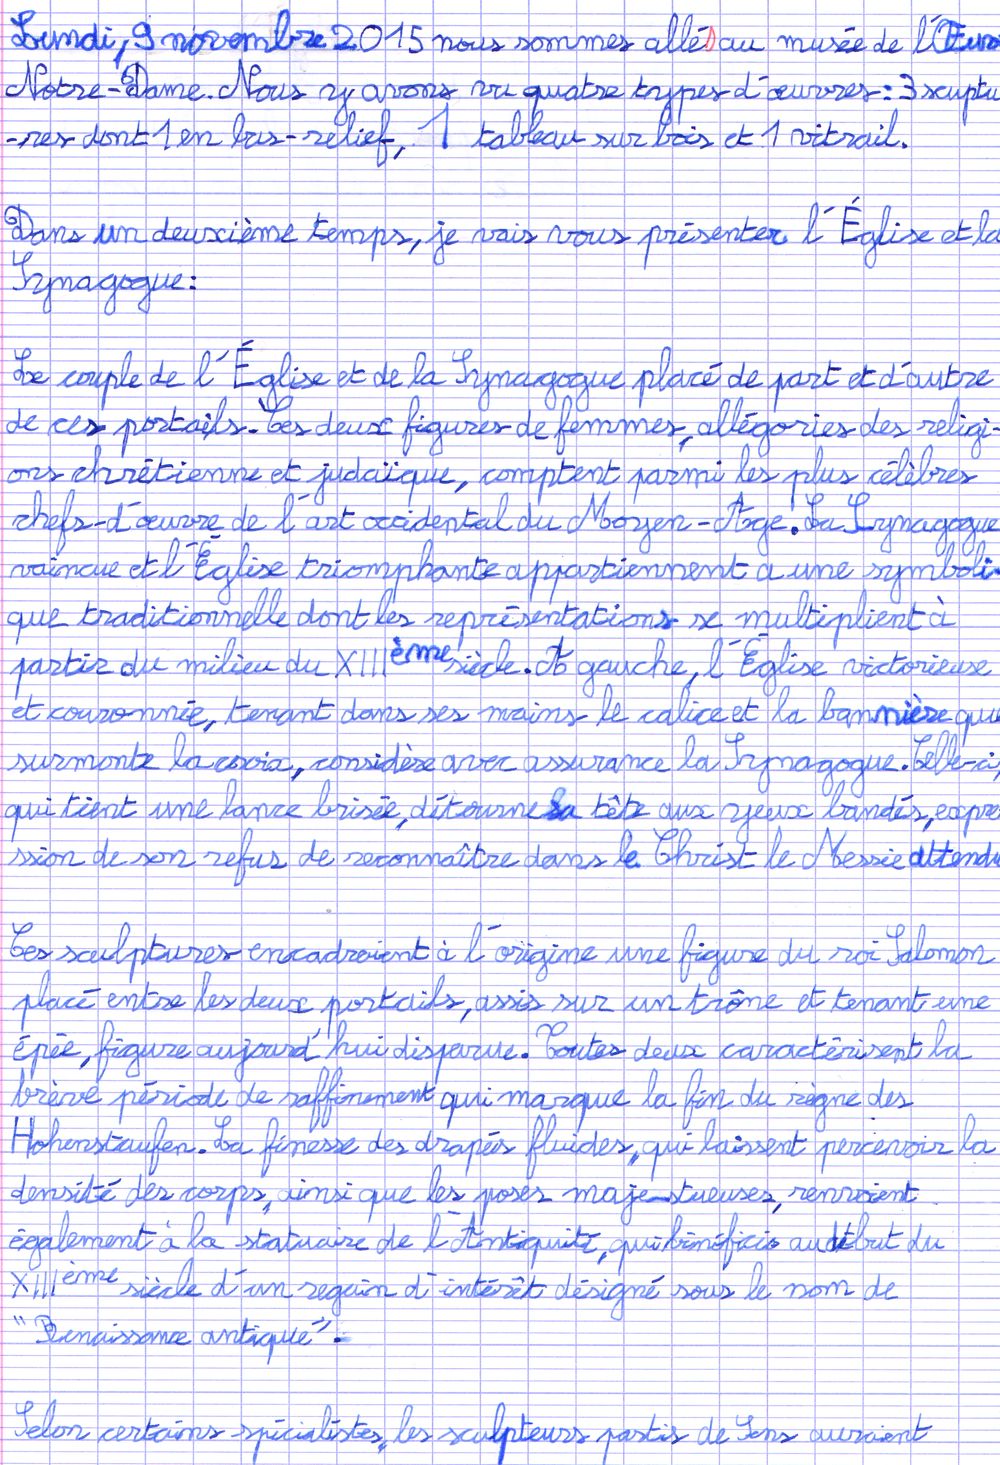 Lundi, 9 novembre 2015 nous sommes allés au musée de l'Œuv
Notre-Dame. Nous y avons vu quatre types d'œuvres: 3 sculptu
-res dont 1 en bas-relief, 1 tableau sur bois et 1 vitrail.
Dans un deuxième temps, je vais vous présenter l'Église et la
Synagogue:
Le couple de l'Église et de la Synagogue placé de part et d'autre
de ces portails. Ces deux figures de femmes, allégories des religi-
ons chrétienne et judaïque, comptent parmi les plus célèbres
chefs-d'œuvre de l'art occidental du Moyen-Age. La Synagogue
vaincue et l'Église triomphante appartiennent à une symboli-
que traditionnelle dont les représentations se multiplient à
partir du milieu du XIIIème siècle. A gauche, l'Église victorieuse
et couronnée, tenant dans ses mains le calice et la bannière que
surmonte la croix, considère avec assurance la Synagogue. Celle-ci,
qui tient une lance brisée, détourne sa tête aux yeux bandés, expre
ssion de son refus de reconnaître dans le Christ le Messie attendu
Ces sculptures encadraient à l'origine une figure du roi Salomon
placé entre les deux portails, assis sur un trône et tenant une
épée, figure aujourd'hui disparue. Toutes deux caractérisent la
brève période de raffinement qui marque la fin du règne des
Hohenstaufen. La finesse des drapés fluides, qui laissent percevoir la
densité des corps, ainsi que les poses majestueuses, renvoient
également à la statuaire de l'Antiquité, qui bénéficia au début du
XIIIème siècle d'un regain d'intérêt désigné sous le nom de
"Renaissance antique".
Selon certains spécialistes, les sculpteurs partis de Sens auraient